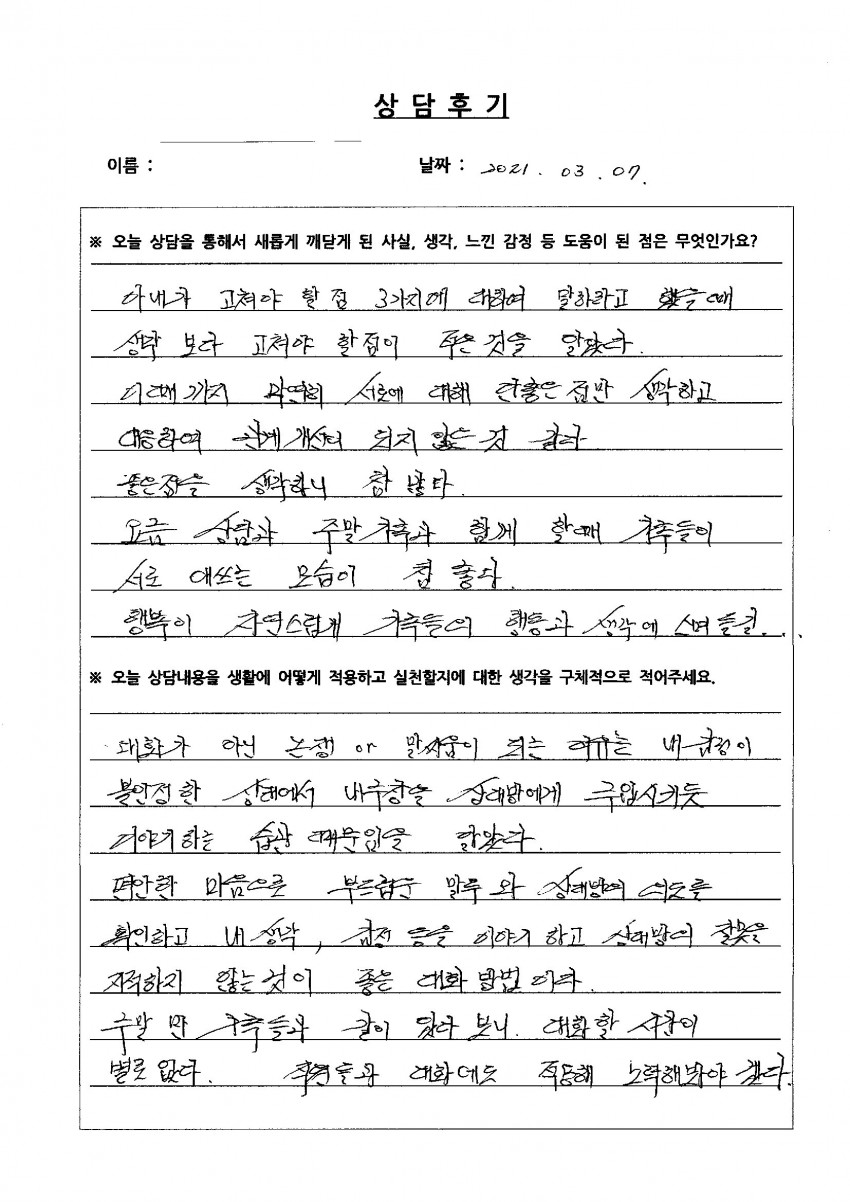 상 담 후 기
이름 :
날짜 : 2021 . 03 . 07.
※ 오늘 상담을 통해서 새롭게 깨닫게 된 사실, 생각, 느낀 감정 등 도움이 된 점은 무엇인가요?
아내가 고쳐야 할 점 3가지에 대하여 말하라고 했을때
생각 보다 고쳐야 할점이 적은 것을 알았다.
이때까지 막연히 서로에 대해 안좋은 점만 생각하고
대응하여 관계 개선이 되지 않는 것 같다
좋은점을 생각하니 참 많다.
요금 상담과 주말 가족과 함께 할때 가족들이
서로 애쓰는 모습이 참 좋다.
행복이 자연스럽게 가족들의 행동과 생각에 스며들길...
※ 오늘 상담내용을 생활에 어떻게 적용하고 실천할지에 대한 생각을 구체적으로 적어주세요.
대화가 아닌 논쟁 or 말싸움이 되는 이유는 내 감정이
불안정한 상태에서 내주장을 상대방에게 주입시키듯
이야기하는 습관 때문임을 알았다.
편안한 마음으로 부드럽운 말투 와 상대방의 의도를
확인하고 내 생각, 감정 등을 이야기 하고 상대방의 잘못을
지적하지 않는것이 좋은 대화 방법 이다.
주말 만 가족들과 같이 있다 보니. 대화할 시간이
별로 없다. 직원들과 대화에도 적용해 노력해봐야 겠다.